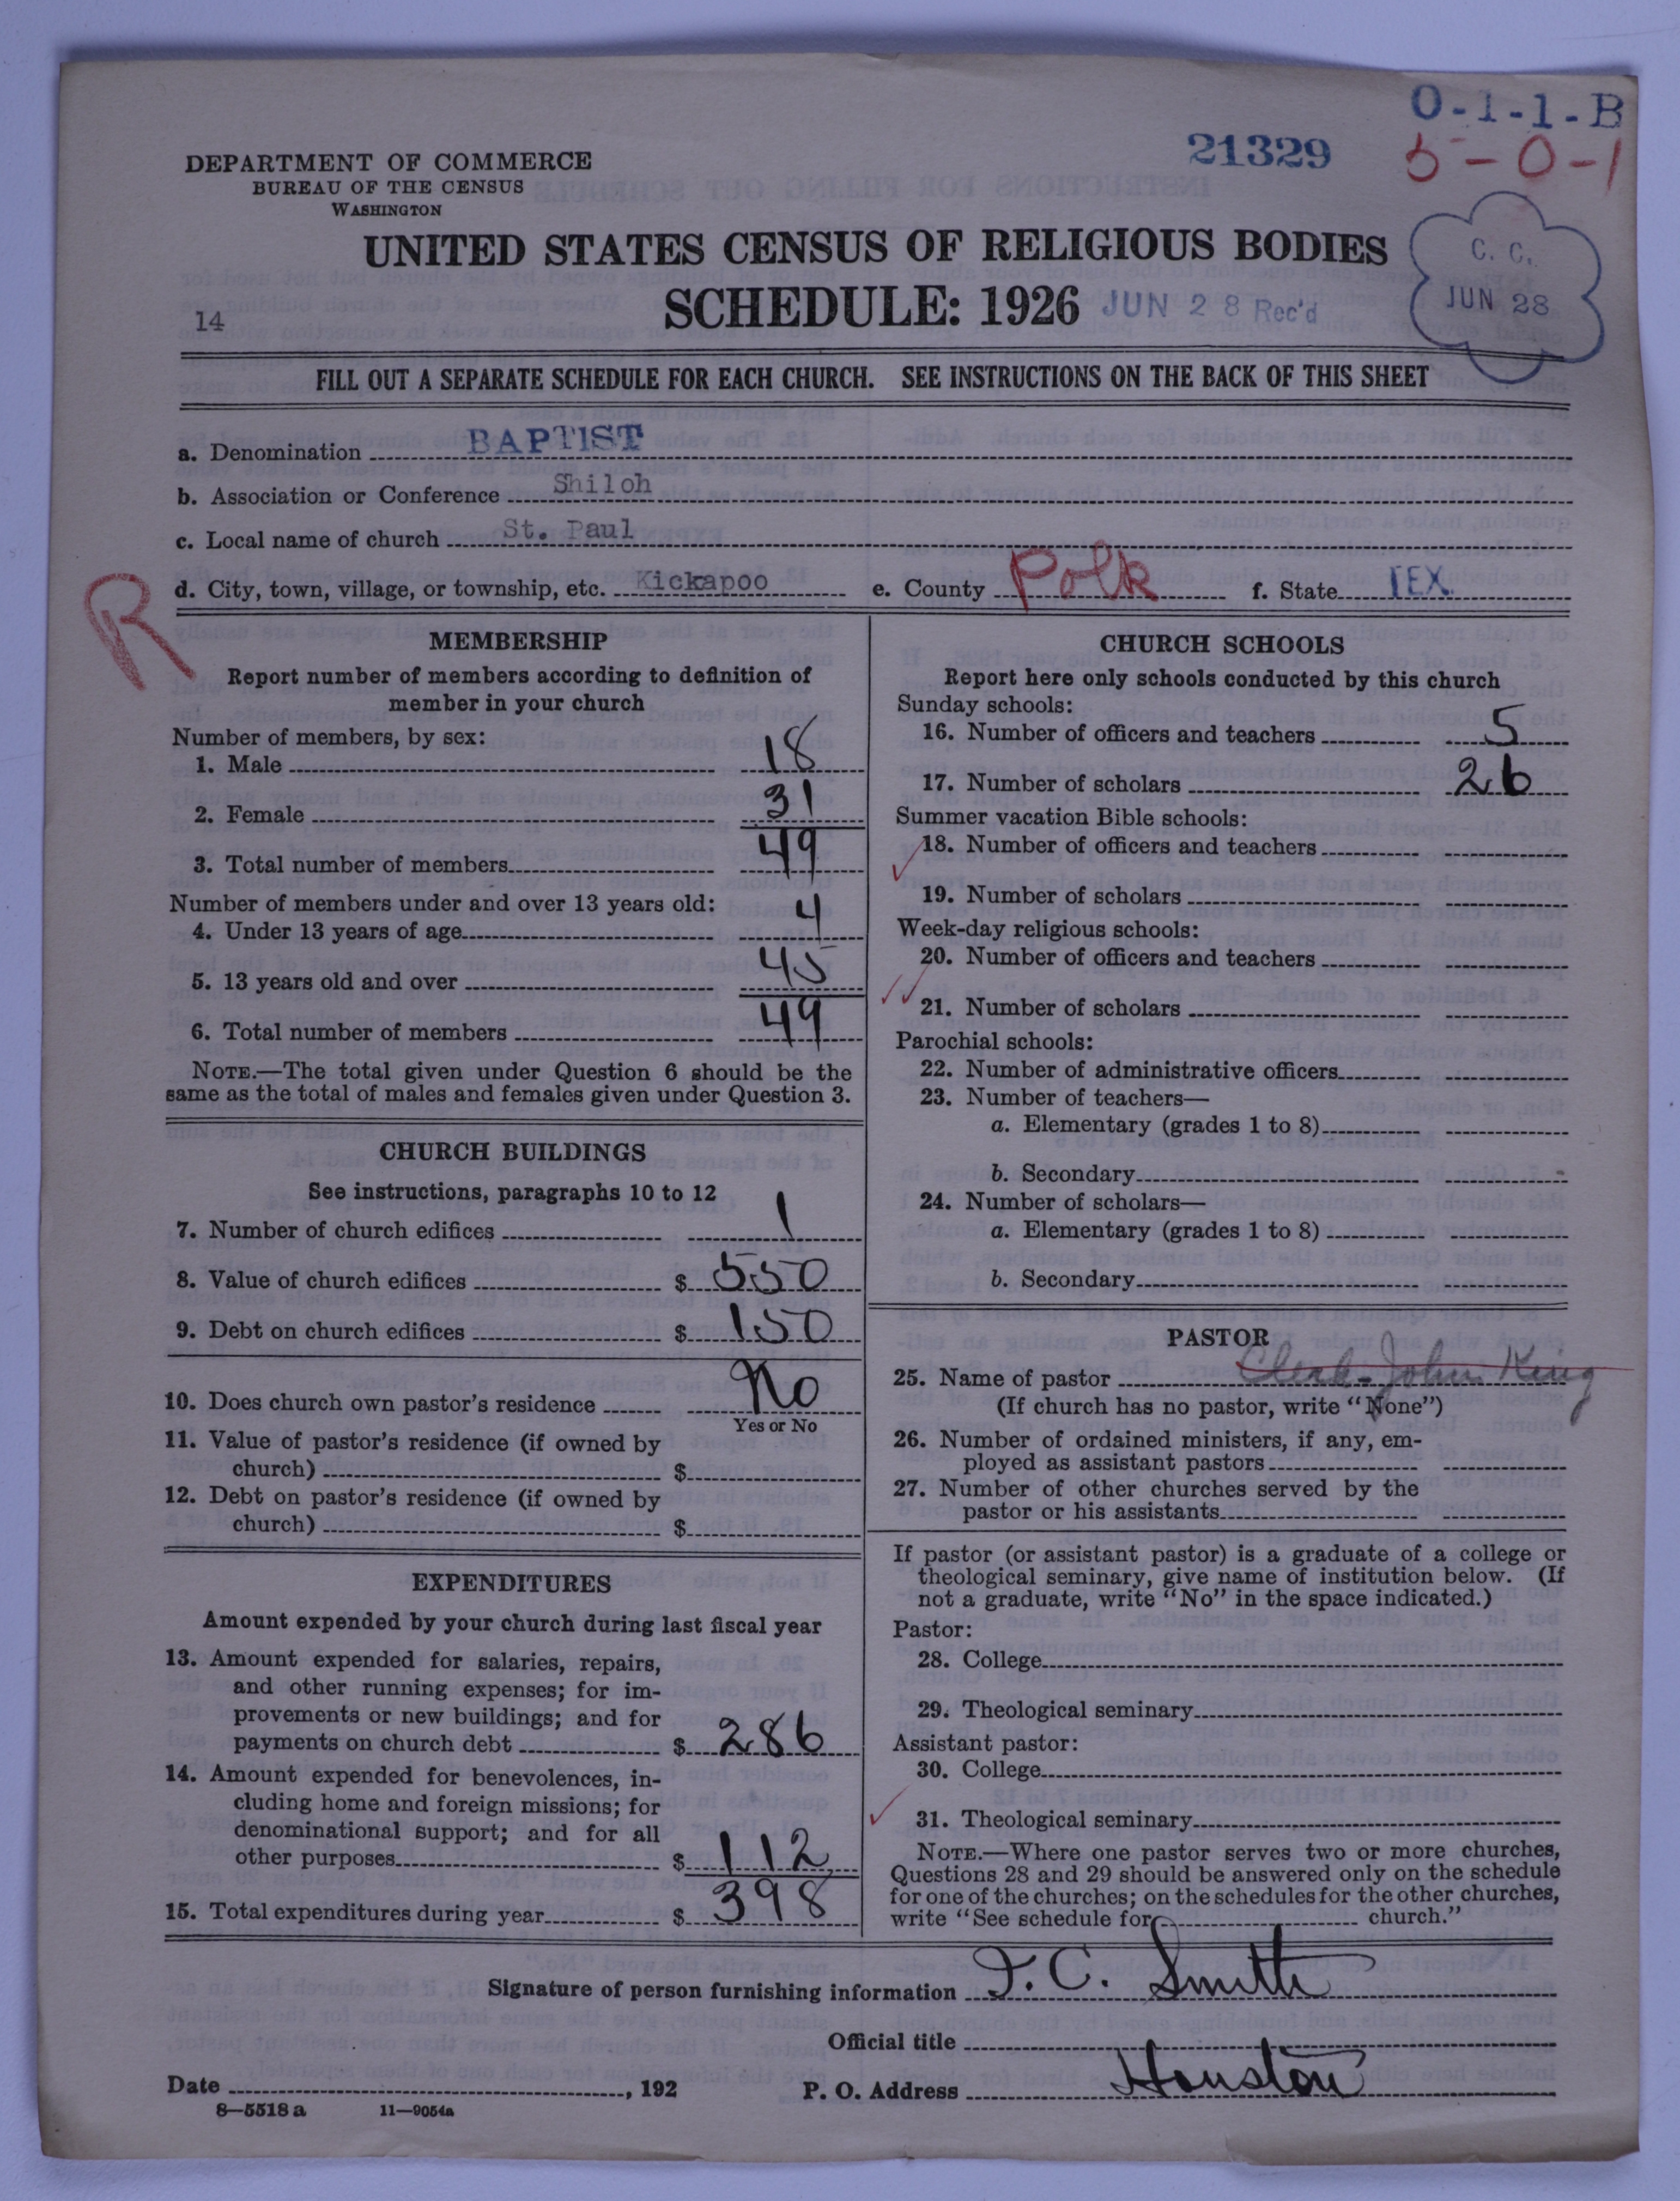 O-1-1-B
21329
5-0-1
DEPARTMENT OF COMMERCE
BUREAU OF THE CENSUS
WASHINGTON
UNITED STATES CENSUS OF RELIGIOUS BODIES
SCHEDULE: 1926 JUN 28 Rec'd
C. C.
JUN 28
14
FILL OUT A SEPARATE SCHEDULE FOR EACH CHURCH. SEE INSTRUCTIONS ON THE BACK OF THIS SHEET
a. Denomination BAPTIST
b. Association or Conference Shiloh
c. Local name of church St. Paul
d. City, town, village, or township, etc. Kickapoo e. County Polk f. State TEX.
R
MEMBERSHIP
Report number of members according to definition of
member in your church
Number of members, by sex:
1. Male 18
2. Female 31
3. Total number of members 49
Number of members under and over 13 years old:
4. Under 13 years of age 4
5. 13 years old and over 45
6. Total number of members 49
NOTE.—The total given under Question 6 should be the
same as the total of males and females given under Question 3.
CHURCH BUILDINGS
See instructions, paragraphs 10 to 12
7. Number of church edifices 1
8. Value of church edifices $ 550
9. Debt on church edifices $ 150
10. Does church own pastor's residence No
Yes or No
11. Value of pastor's residence (if owned by
church) $
12. Debt on pastor's residence (if owned by
church) $
EXPENDITURES
Amount expended by your church during last fiscal year
13. Amount expended for salaries, repairs,
and other running expenses; for im-
provements or new buildings; and for
payments on church debt $ 286
14. Amount expended for benevolences, in-
cluding home and foreign missions; for
denominational support; and for all
other purposes $ 112
15. Total expenditures during year $ 398
CHURCH SCHOOLS
Report here only schools conducted by this church
Sunday schools:
16. Number of officers and teachers 5
17. Number of scholars 26
Summer vacation Bible schools:
18. Number of officers and teachers
19. Number of scholars
Week-day religious schools:
20. Number of officers and teachers
21. Number of scholars
Parochial schools:
22. Number of administrative officers
23. Number of teachers—
a. Elementary (grades 1 to 8)
b. Secondary
24. Number of scholars—
a. Elementary (grades 1 to 8)
b. Secondary
PASTOR
25. Name of pastor Clerk-John King
(If church has no pastor, write "None")
26. Number of ordained ministers, if any, em-
ployed as assistant pastors
27. Number of other churches served by the
pastor or his assistants
If pastor (or assistant pastor) is a graduate of a college or
theological seminary, give name of institution below. (If
not a graduate, write "No" in the space indicated.)
Pastor:
28. College
29. Theological seminary
Assistant pastor:
30. College
31. Theological seminary
NOTE.—Where one pastor serves two or more churches,
Questions 28 and 29 should be answered only on the schedule
for one of the churches; on the schedules for the other churches,
write "See schedule for church."
Signature of person furnishing information J. C. Smith
Official title
Date , 192 P. O. Address Houston
8—5518 a 11—9054a